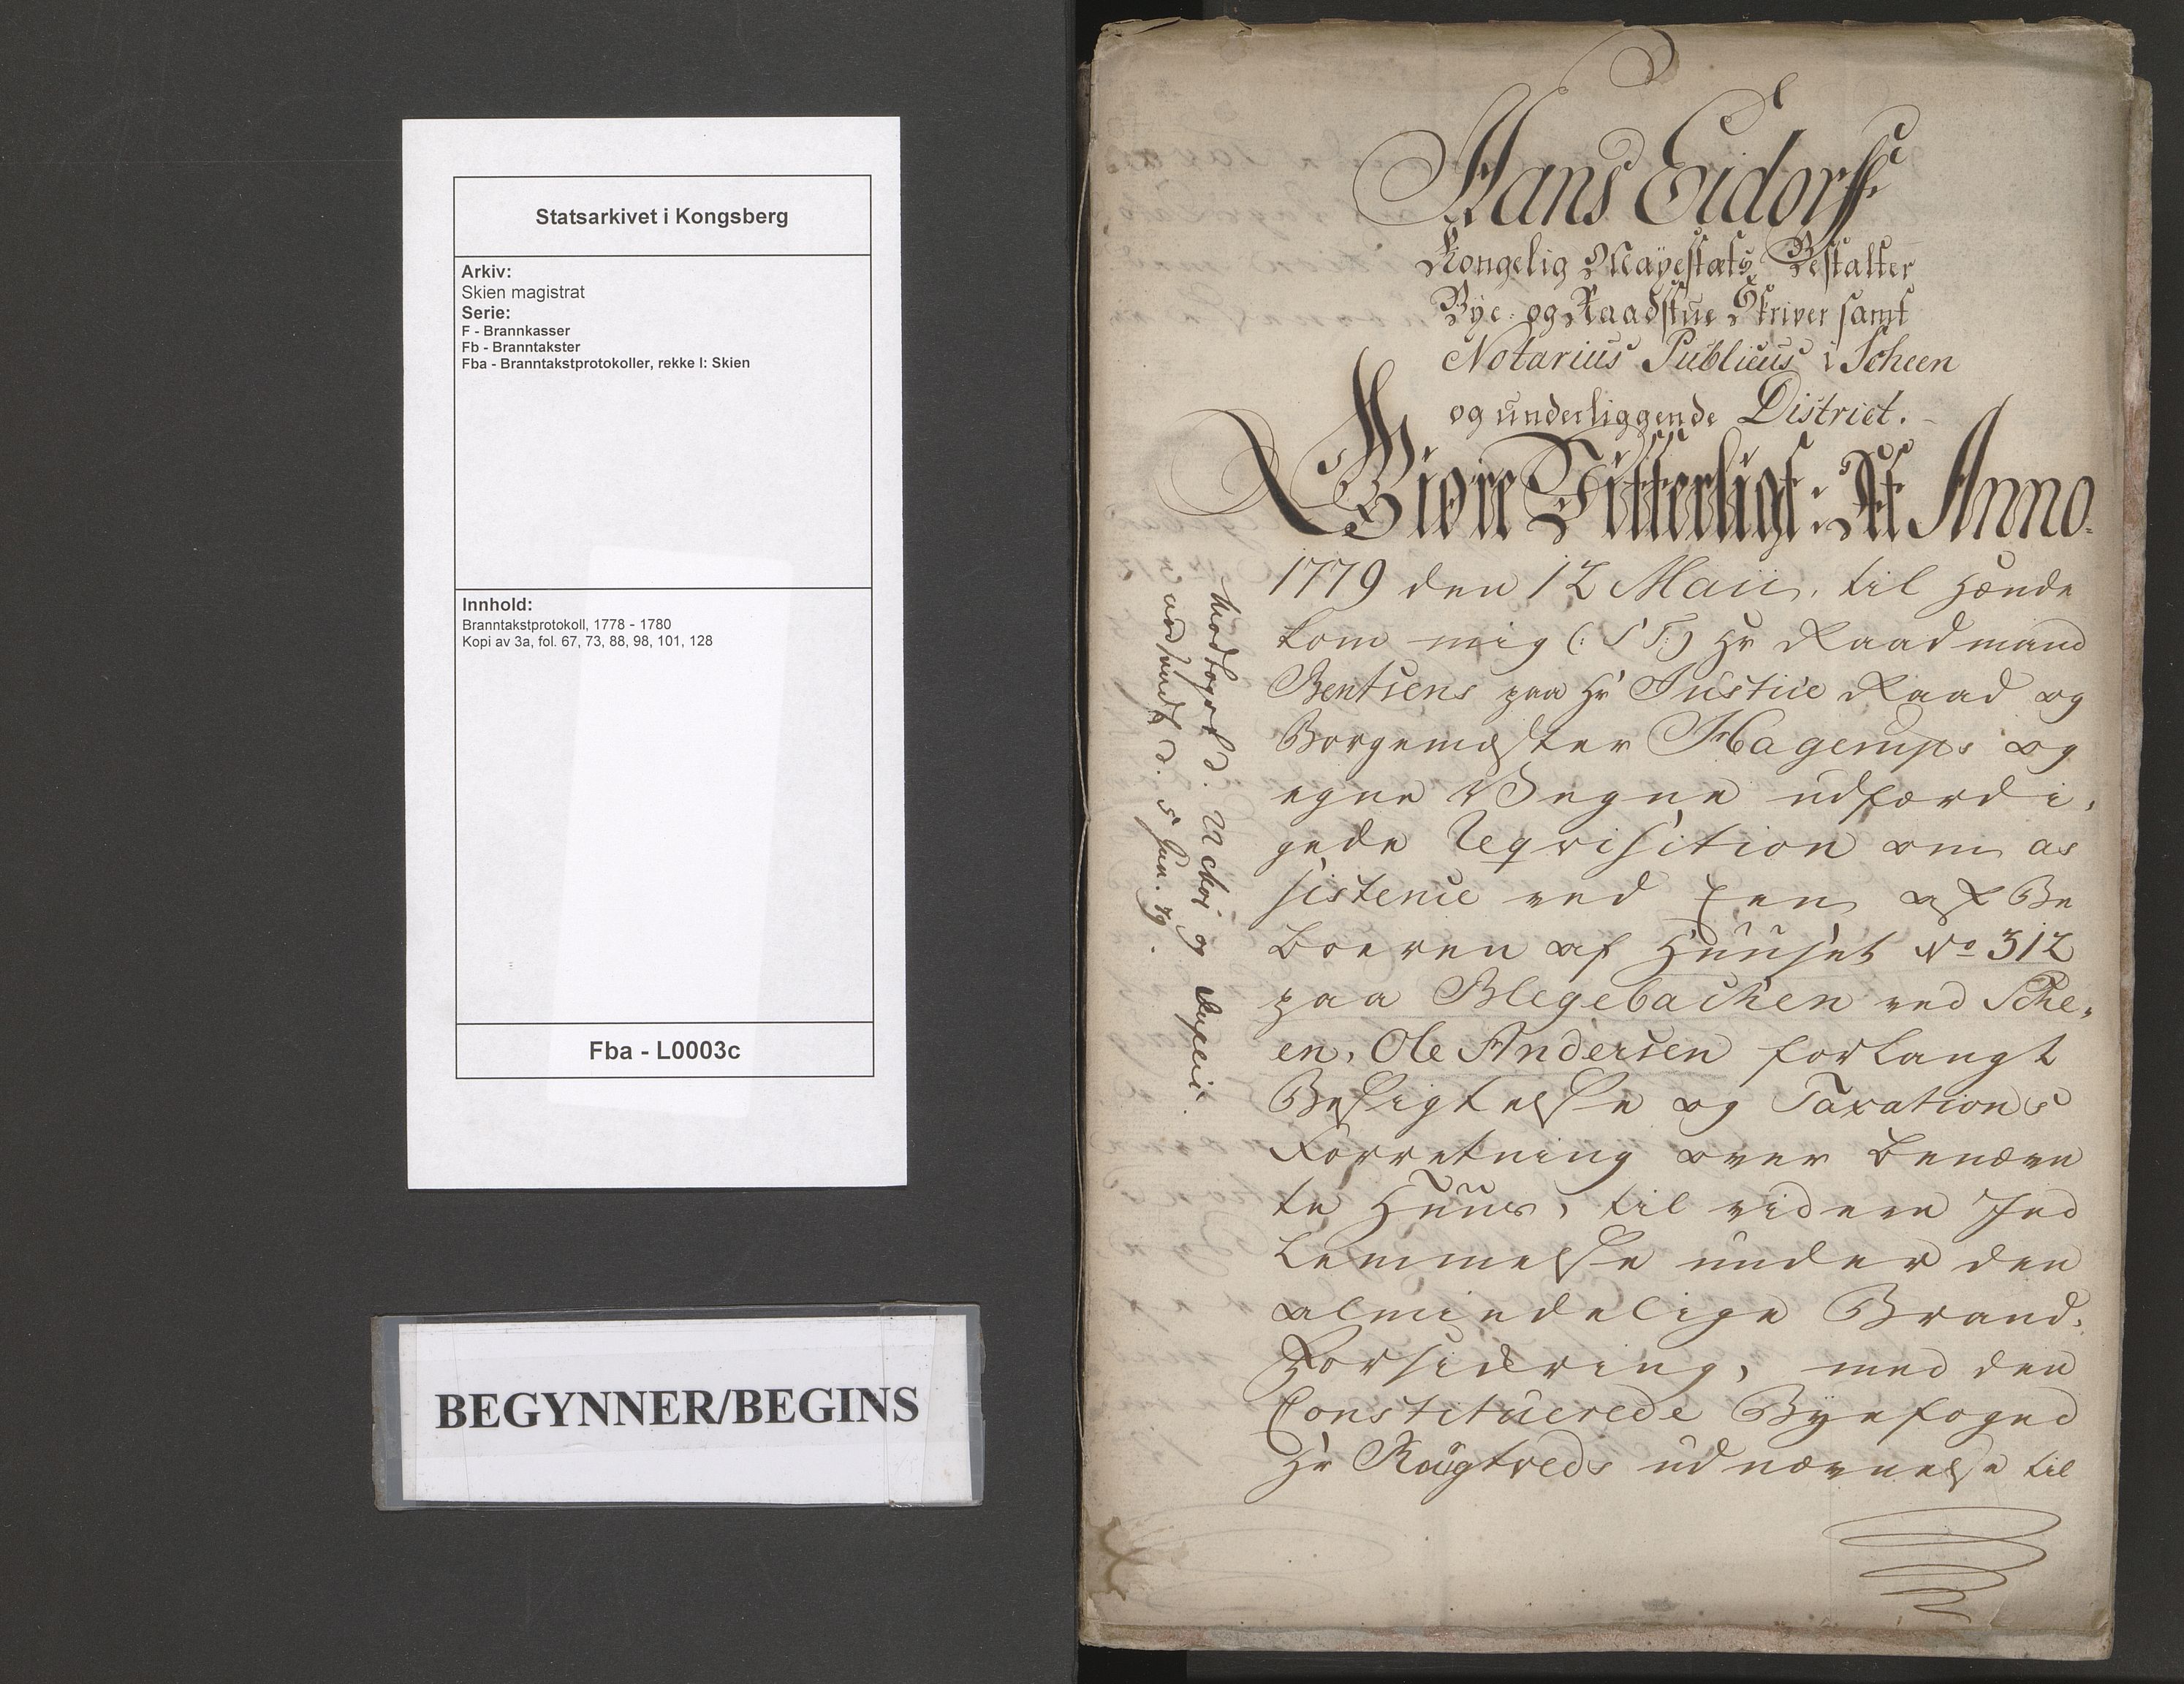 Statsarkivet i Kongsberg
Arkiv:
Skien magistrat
Serie:
F - Brannkasser
Fb - Branntakster
Fba - Branntakstprotokoller, rekke I: Skien
Innhold:
Branntakstprotokoll, 1778 - 1780
Kopi av 3a, fol. 67, 73, 88, 98, 101, 128
Fba - L0003c
BEGYNNER/BEGINS
Hans Eidorff
Kongelig Mayestæts Bestalter
Bye- og Raadstue Skriver samt
Notarius Publicus i Scheen
og underliggende District.
Giøre Vitterligt: At Anno
1779 den 12 Maii, til hænde
kom mig (: S T:) Hr Raadmand
Bentsens paa Hr Justice Raad og
Borgemester Hagerups og
egne Vegne udfærdi-
gede Reqvisition om as
sistence ved een af Be
boeren af Huuset No 312
paa Blegebachen ved Sche-
en, Ole Andersen forlangt
Besigtelse og Taxations
Forretning over benævn
te Huus, til videre Ind
lemmelse under den
almindelige Brand-
Forsicring, med den
Constituerede Byefoged
Hr Rougtveds udnævnelse til
Modtaget d.